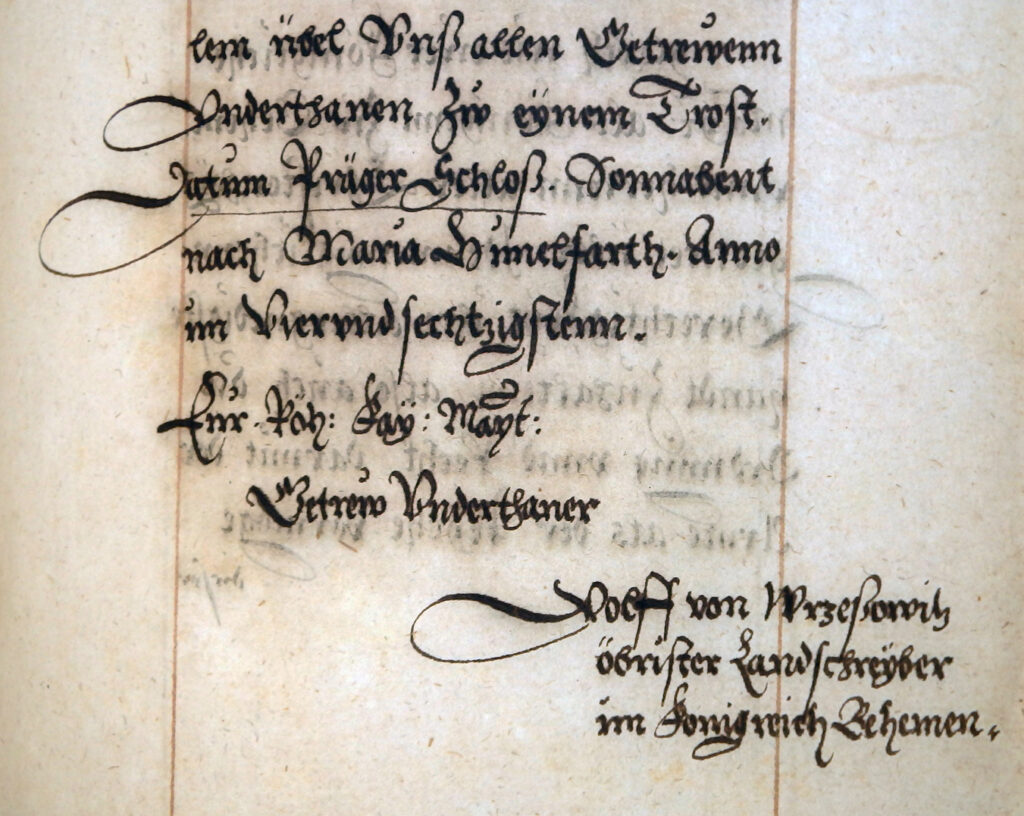 lem übel Vnß allen Getrewenn
Vnderthanen Zw eynem Trost.
Datum Präger Schloß. Sonnabent
nach Maria Himelfarth. Anno
im Viervndsechtzigstenn.
Eur. Röm: Kay: Mayt:
Getrew Vnderthaner
Wolff von Wrzesowitz
öbrister Landschreyber
im Konigreich Behemen.